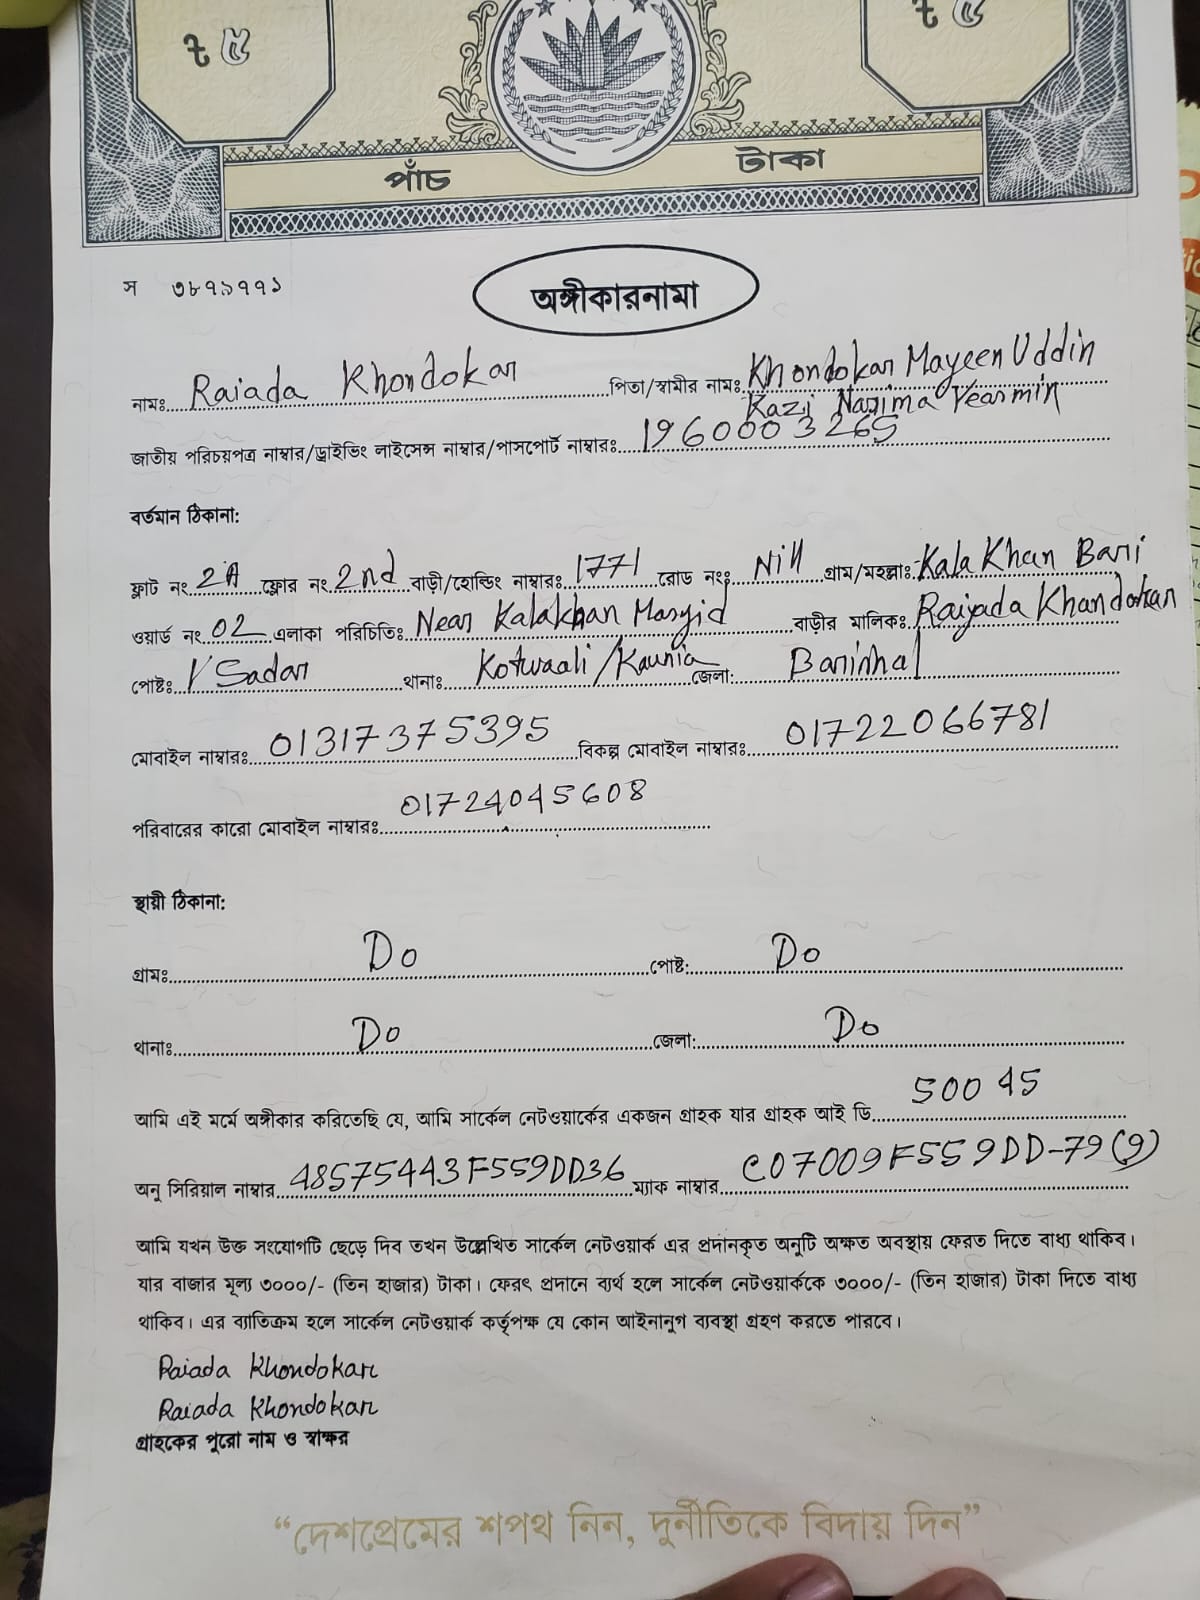 ৳ ৫
৳ ৫
পাঁচ টাকা
স ৩৮৭১৭৭১
অঙ্গীকারনামা
নামঃ Raiada Khondokar পিতা/স্বামীর নামঃ Khondokar Mayeen Uddin
Kazi Nasima Yearmin
জাতীয় পরিচয়পত্র নাম্বার/ড্রাইভিং লাইসেন্স নাম্বার/পাসপোর্ট নাম্বারঃ 1960003265
বর্তমান ঠিকানা:
ফ্লাট নং 2A ফ্লোর নং 2nd বাড়ী/হোল্ডিং নাম্বারঃ 1771 রোড নংঃ Nill গ্রাম/মহল্লাঃ Kala Khan Bari
ওয়ার্ড নং 02 এলাকা পরিচিতিঃ Near Kalakhan Masjid বাড়ীর মালিকঃ Raiyada Khandokar
পোষ্টঃ Sadar থানাঃ Kotwaali/Kaunia জেলা: Barishal
মোবাইল নাম্বারঃ 01317375395 বিকল্প মোবাইল নাম্বারঃ 01722066781
পরিবারের কারো মোবাইল নাম্বারঃ 01724045608
স্থায়ী ঠিকানা:
গ্রামঃ Do পোষ্ট: Do
থানাঃ Do জেলা: Do
আমি এই মর্মে অঙ্গীকার করিতেছি যে, আমি সার্কেল নেটওয়ার্কের একজন গ্রাহক যার গ্রাহক আই ডি 50045
অনু সিরিয়াল নাম্বার 48575443F559DD36 ম্যাক নাম্বার C07009F559DD-79(9)
আমি যখন উক্ত সংযোগটি ছেড়ে দিব তখন উল্লেখিত সার্কেল নেটওয়ার্ক এর প্রদানকৃত অনুটি অক্ষত অবস্থায় ফেরত দিতে বাধ্য থাকিব।
যার বাজার মূল্য ৩০০০/- (তিন হাজার) টাকা। ফেরৎ প্রদানে ব্যর্থ হলে সার্কেল নেটওয়ার্ককে ৩০০০/- (তিন হাজার) টাকা দিতে বাধ্য
থাকিব। এর ব্যাতিক্রম হলে সার্কেল নেটওয়ার্ক কর্তৃপক্ষ যে কোন আইনানুগ ব্যবস্থা গ্রহণ করতে পারবে।
Raiada Khondokar
Raiada Khondokar
গ্রাহকের পুরো নাম ও স্বাক্ষর
“দেশপ্রেমের শপথ নিন, দুর্নীতিকে বিদায় দিন”